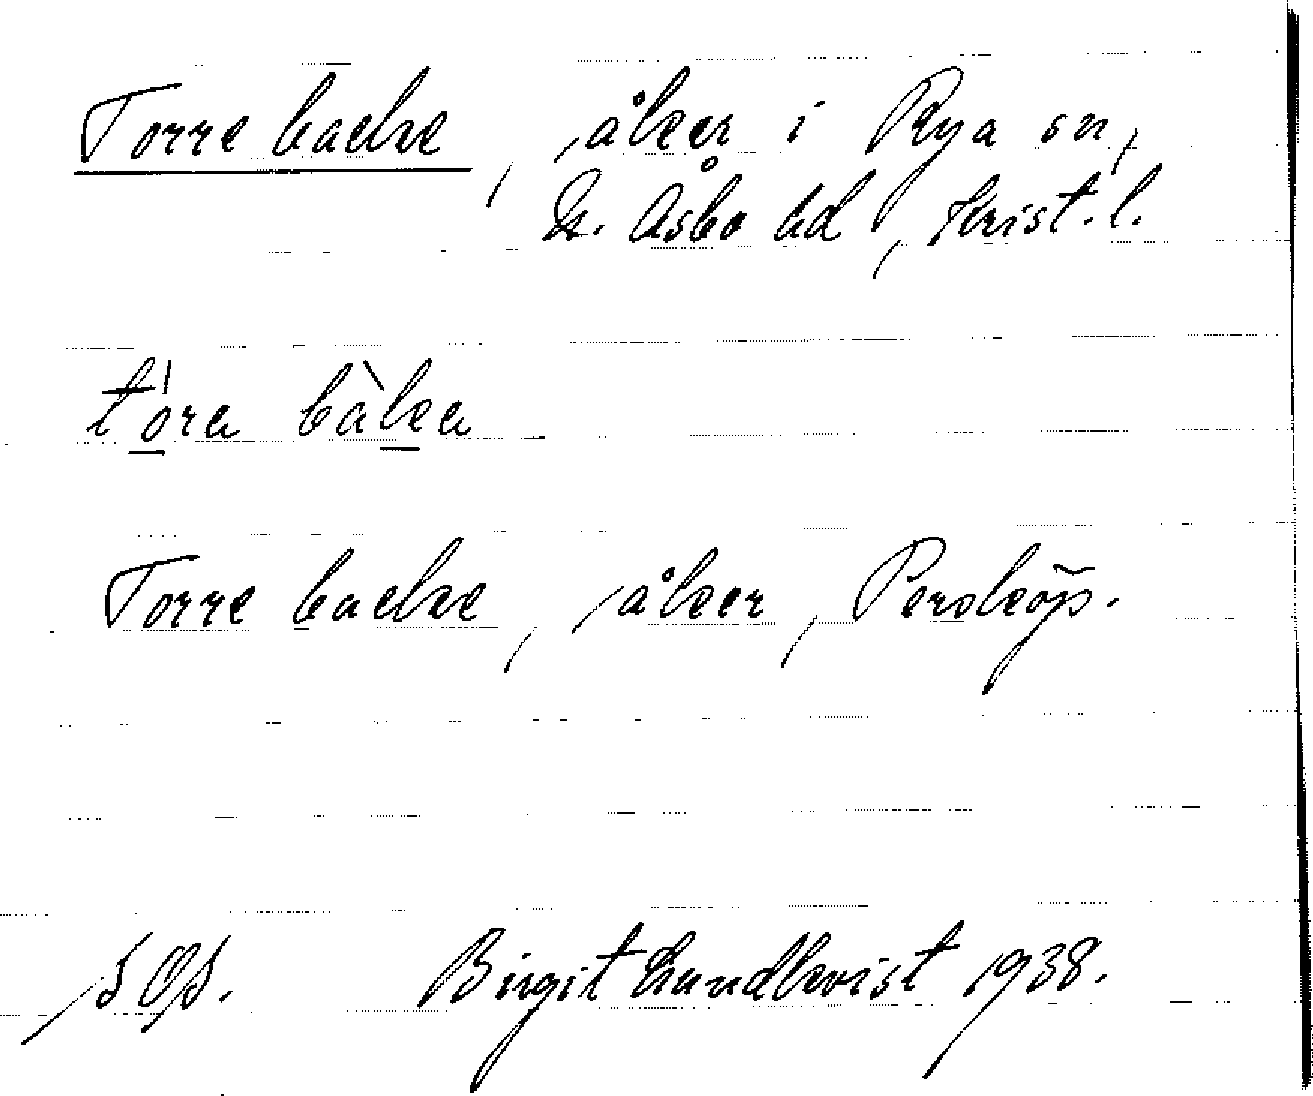 Torre backe, åker i Rya sn,
N. Åsbo hd, Krist. l.
tóra bàka
Torre backe, åker, Persköp.
Birgit Lundkvist 1938.